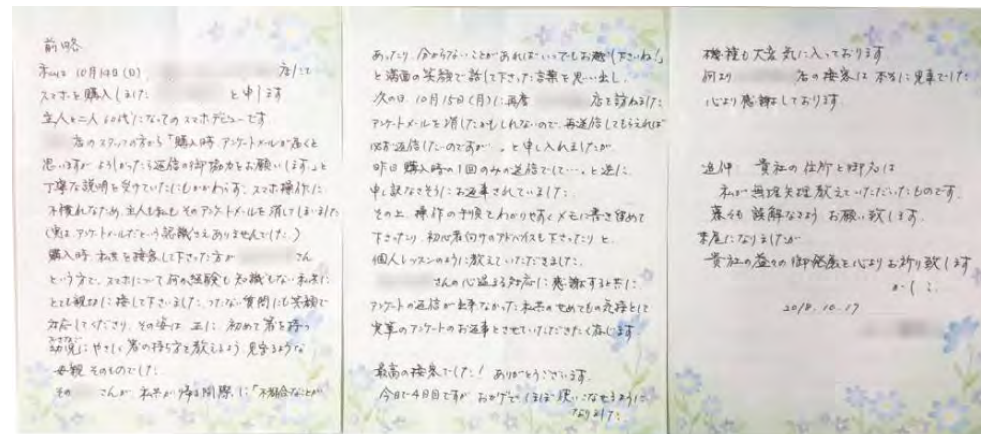 前略
私は 10月14日(日) 店にて
スマホを購入しました と申します
主人と二人 60代になってのスマホデビューです
店のスタッフの方から「購入時 アンケートメールが届くと
思いますが よろしかったら返信の御協力をお願いします。」と
丁寧な説明を受けていたにもかかわらず、スマホ操作に
不慣れなため、主人も私も そのアンケートメールを消してしまいました
(実は、アンケートメールだという認識さえありませんでした。)
購入時 私共を接客して下さった方が さん
という方で、スマホについて何の経験も知識もない私共に
とても親切に接して下さいました。つたない質問にも笑顔で
対応してくださり、その姿は 正に、初めて箸を持つ
幼児にやさしく箸の持ち方を教えるよう、見守るような
母親そのものでした。
その さんが、私共が帰る間際に「不都合なことが
あったり、分からないことがあればいつでもお越し下さいね!」
と満面の笑顔で話して下さった言葉を思い出し、
次の日、10月15日(月)に再度 店を訪ねました
アンケートメールを消したかもしれないので、再送信してもらえれば
必ず返信したいのですが、と申し入れましたが
昨日 購入時の1回のみの送信でして…。と逆に
申し訳なさそうにお返事されていました。
その上、操作の手順をわかりやすくメモに書き留めて
下さったり 初心者向けのアドバイスも下さったりと、
個人レッスンのように教えていただきました。
さんの心温まる対応に感謝すると共に、
アンケートの返信が出来なかった私共のせめてもの気持として
実筆のアンケートのお返事とさせていただきたく存じます
最高の接客でした! ありがとうございます。
今日で4日目ですが おかげでほぼ使いこなせるように
なりました。
機種も大変気に入っております
何より 店の接客は 本当に見事でした
心より感謝しております。
追伸 貴社の住所と御名は
私が無理矢理教えていただいたものです。
誤解なさらぬよう お願い致します。
末尾になりましたが
貴社の益々の御発展を心よりお祈り致します
かしこ
2018.10.17